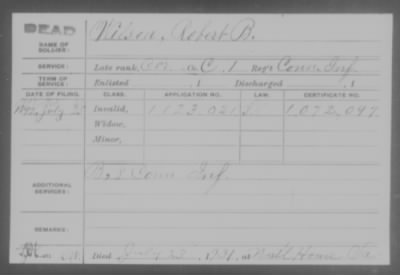 DEAD
NAME OF SOLDIER:
Wilson, Robert B.
SERVICE:
Late rank, Co. C, 1 Reg't Conn Inf.
TERM OF SERVICE:
Enlisted , 1 Discharged , 1
DATE OF FILING. CLASS. APPLICATION NO. LAW. CERTIFICATE NO.
July Invalid, 1123021 1.072.097
Widow,
Minor,
ADDITIONAL SERVICES:
B, 8 Conn Inf.
REMARKS:
Died July 23, 1931, at Nat'l Home